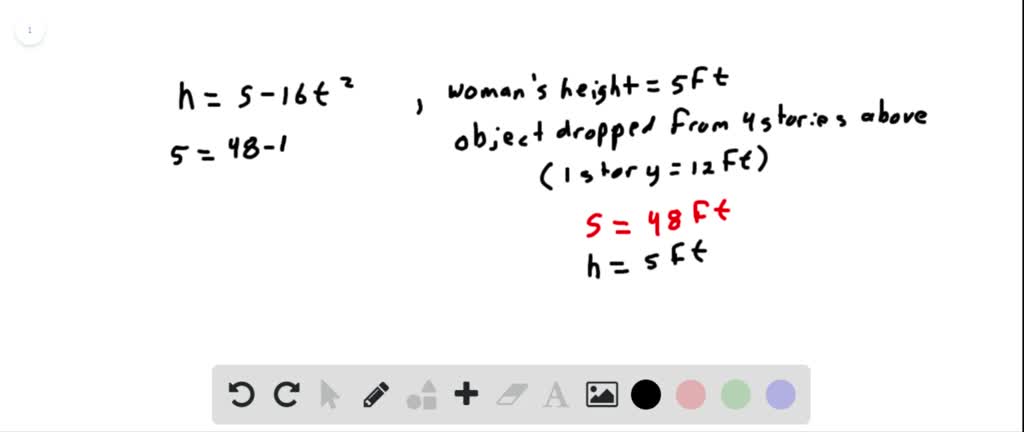 1
h = s - 16t²
, woman's height = 5ft
5 = 48 - 1
object dropped from 4 stories above
(1 story = 12ft)
s = 48ft
h = 5ft
A